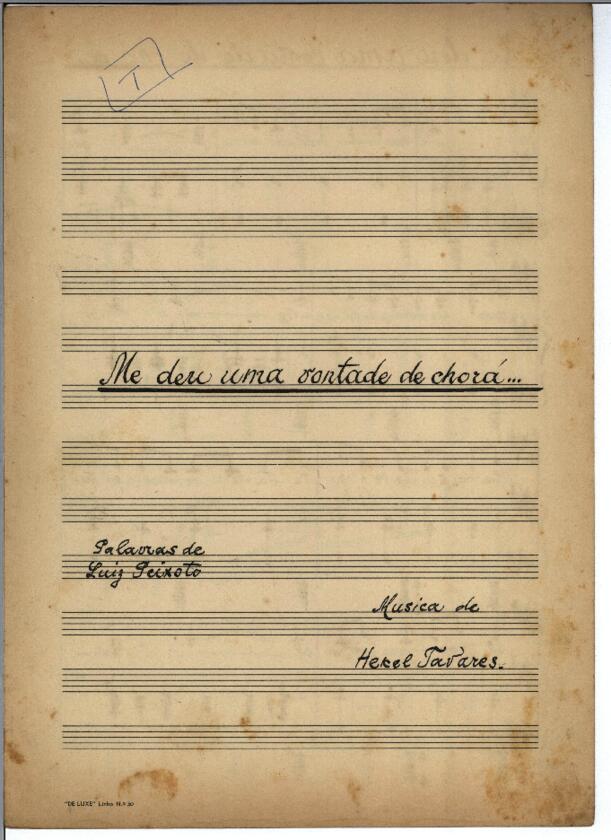 I
Me deu uma vontade de chorá...
Palavras de
Luiz Peixoto
Musica de
Hekel Tavares.
"DE LUXE" Linhas N.º 30